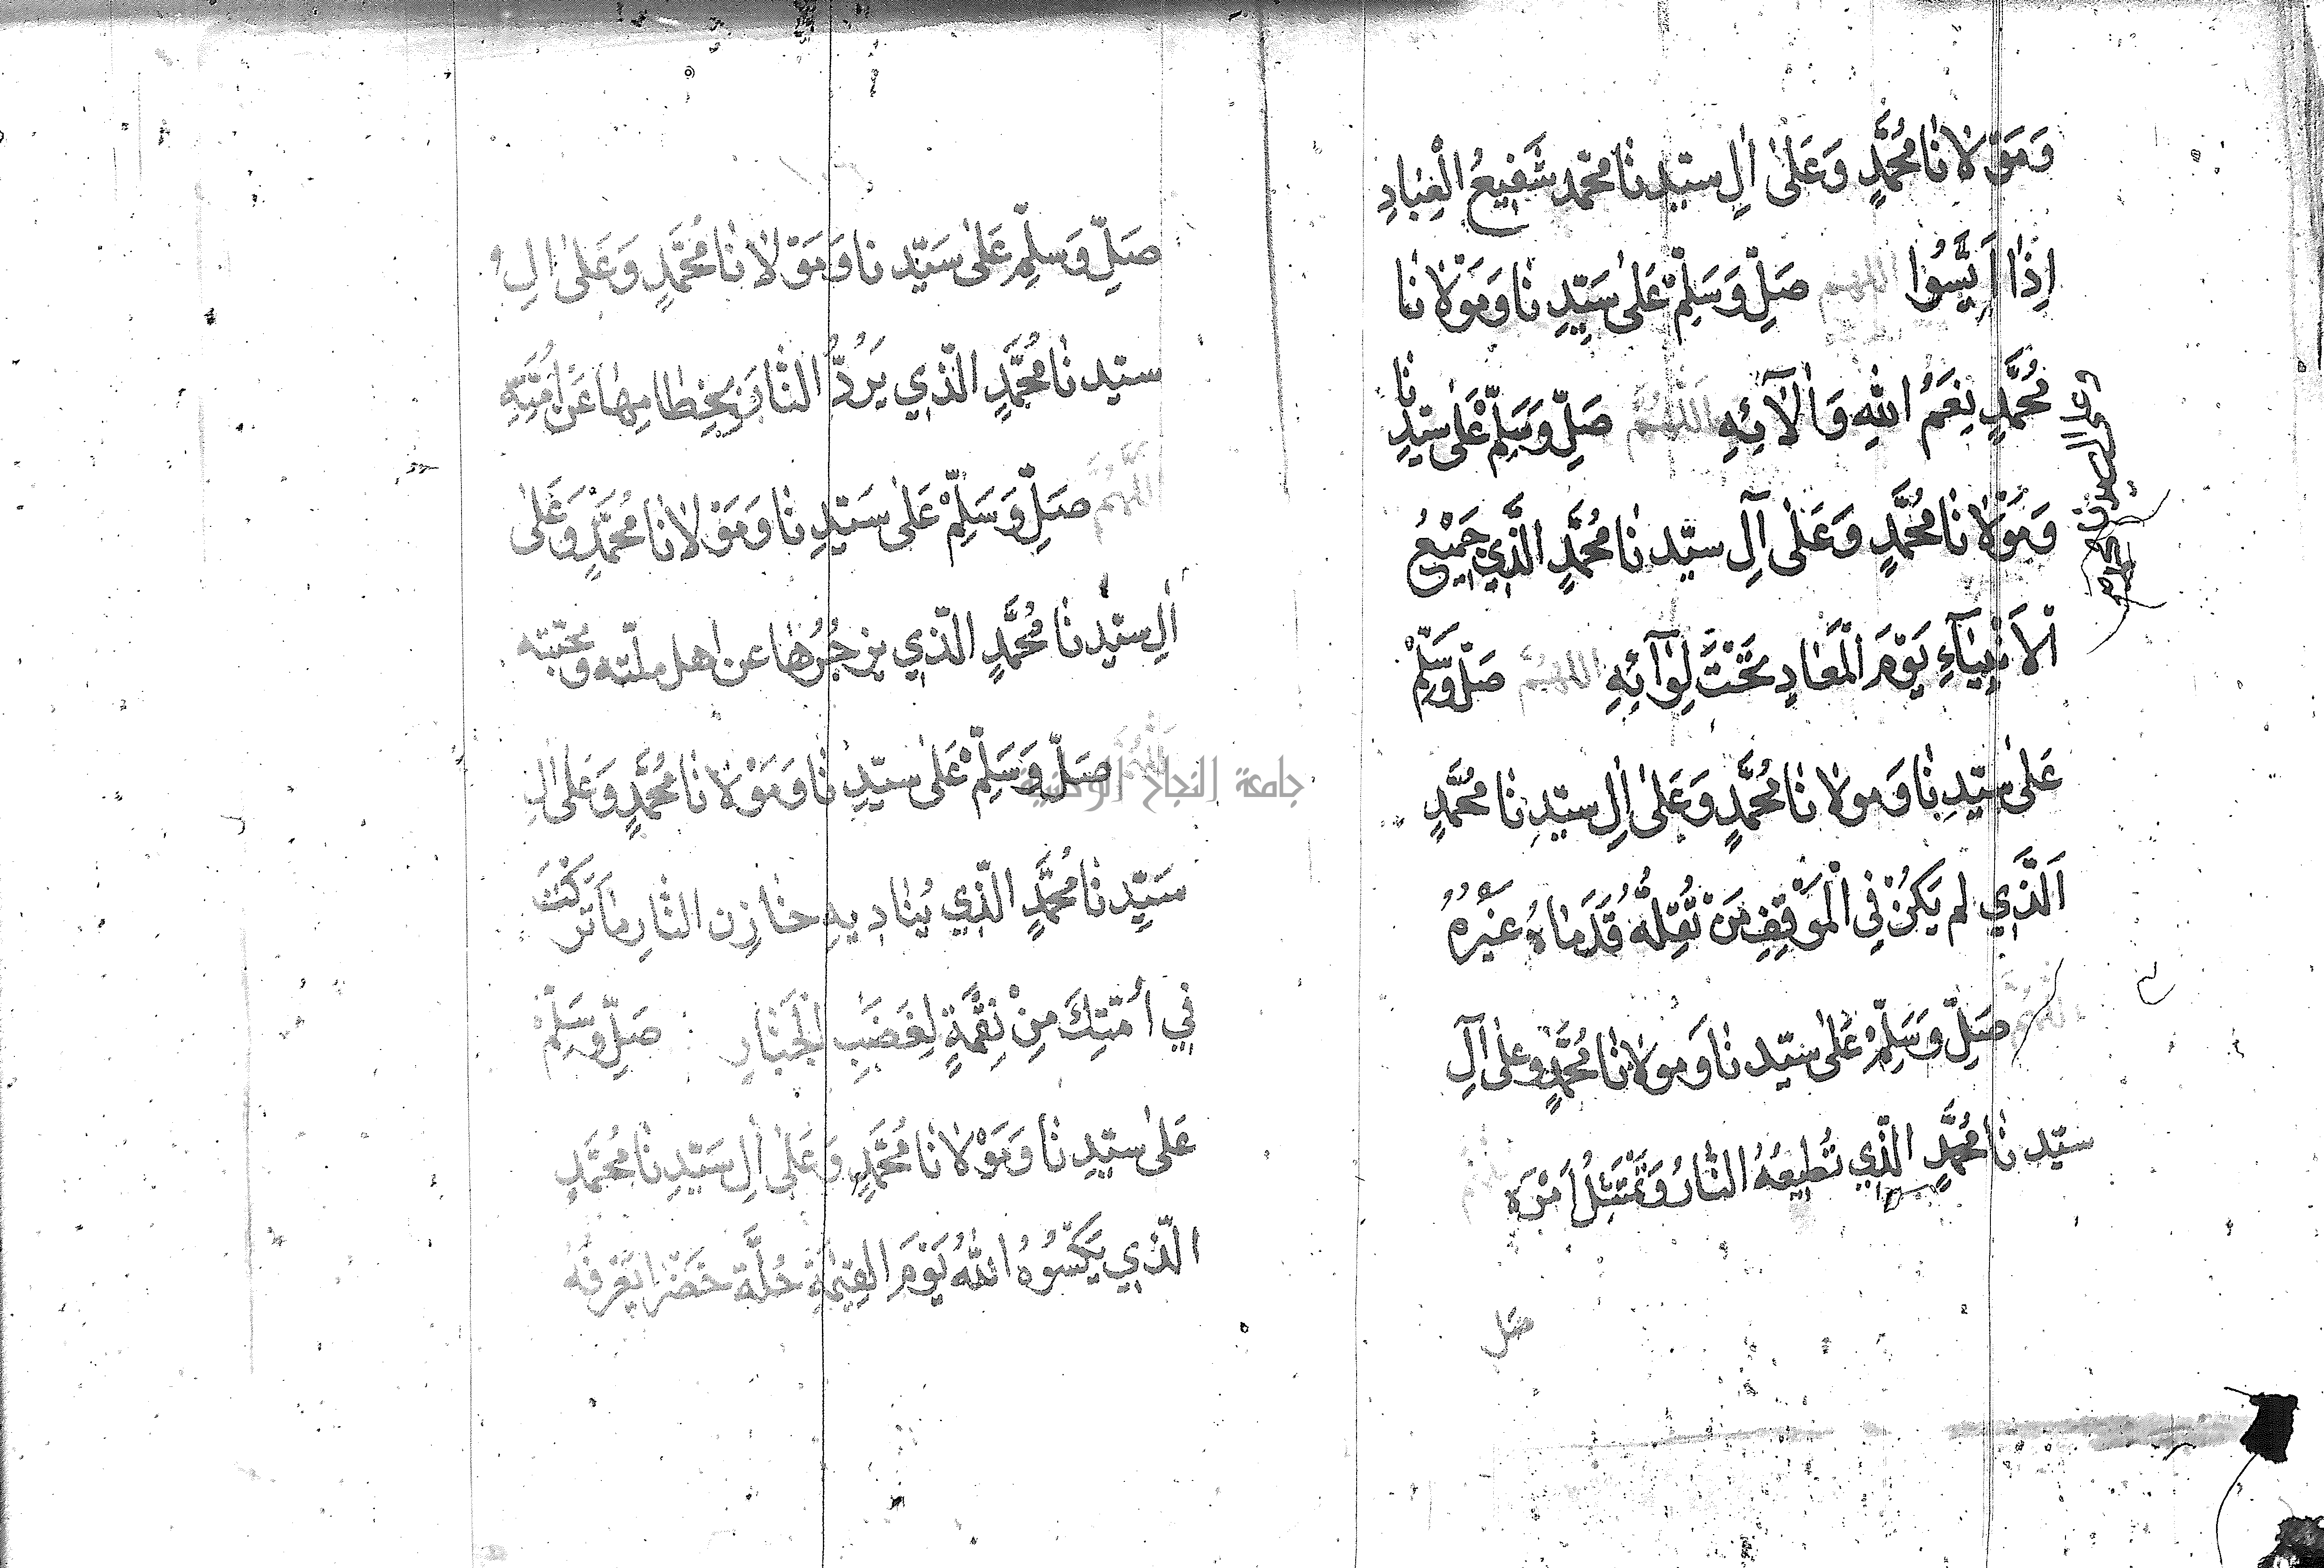 وَمَوْلَانَا مُحَمَّدٍ وَعَلَىٰ اٰلِ سيّدِنَا محمّد شَفِيعُ الْعِبَادِ
اِذَا اَيِّسُوا اللهم صَلِّ وَسَلِّمْ عَلَىٰ سَيّدِنَا وَمَوْلَانَا
مُحَمَّدٍ نِعَمُ اللهِ وَاٰلَآئِهِ اَللّٰهُمَّ صَلِّ وَسَلِّمْ عَلَىٰ سَيّدِنَا
وعلى ال سيدنا محمد
وَمَوْلَانَا مُحَمَّدٍ وَعَلَىٰ آلِ سيّدنَا مُحَمَّدٍ الَّذِي جَمِيْعُ
الْاَنْبِيَآءِ يَوْمَ الْمَعَادِ تَحْتَ لِوَآئِهِ اللهمّ صَلِّ وَسَلِّمْ
عَلَىٰ سيّدِنَا وَمولَانَا مُحَمَّدٍ وَعَلَىٰ اٰلِ سيّدِنَا مُحَمَّدٍ
اَلَّذِي لم يَكُنْ فِي الْمَوْقِفِ مَنْ تُقِلُّهُ قَدَمَاهُ غَيْرُهُ
اللهم صَلِّ وَسَلِّمْ عَلَىٰ سيّدنَا وَمولَانَا مُحَمَّدٍ وعلى آلِ
سيّدنَا مُحَمَّدٍ الَّذِي تُطِيعُهُ النَّارُ وَتَمْتَثِلُ اَمْرَهُ اللهم
صل
صَلِّ وَسَلِّمْ عَلَىٰ سَيّدنا وَمَوْلَانَا مُحَمَّدٍ وَعَلَىٰ الِ
سيّدنَا مُحَمَّدٍ الَّذِي يَرُدُّ النَّارَ بِخِطَامِهَا عَنْ اُمَّتِهِ
اللّهُمَّ صَلِّ وَسَلِّمْ عَلَىٰ سَيّدِنَا وَمَوْلَانَا مُحَمَّدٍ وَعَلَىٰ
اٰلِ سيّدِنَا مُحَمَّدٍ الَّذِي يزجُرُهَا عن اهل ملّته ومحبّته
اللهُمَّ صَلِّ وَسَلِّمْ عَلَىٰ سيّدِنَا وَمَوْلَانَا مُحَمَّدٍ وَعَلَىٰ الِ
سَيّدِنَا مُحَمَّدٍ الَّذِي يُنَادِيهِ خَازِن النَّارِ مَا تَرَكْتَ
فِي أُمَّتِكَ مِنْ نِقْمَةٍ لِغَضَبِ الْجَبَّارِ صَلِّ وَسَلِّمْ
عَلَىٰ سيّدِنَا وَمَوْلَانَا مُحَمَّدٍ وَعَلَىٰ اٰلِ سَيّدِنَا مُحَمَّدٍ
الَّذِي يَكْسُوهُ اللهُ يَوْمَ القِيٰمَةِ حُلَّة خَضْرَا يَعْرِفُهُ
جامعة النجاح الوطنية